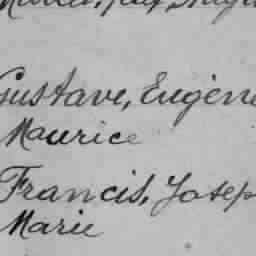 Gustave, Eugène
Maurice
Francis, Josep
Marie